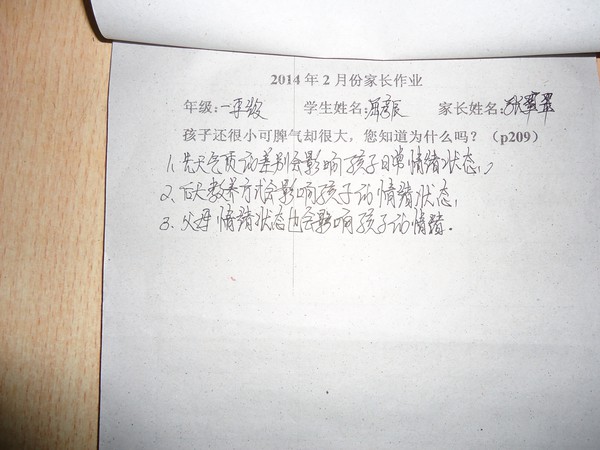 2014 年 2 月份家长作业
年级:一年级 学生姓名: 家长姓名:张翠翠
孩子还很小可脾气却很大，您知道为什么吗？（p209）
1、先天气质的差别会影响孩子日常情绪状态，
2、后天教养方式会影响孩子的情绪状态，
3、父母情绪状态也会影响孩子的情绪.